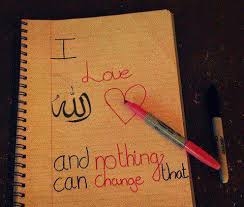 I
Love
الله
and nothing
can change that